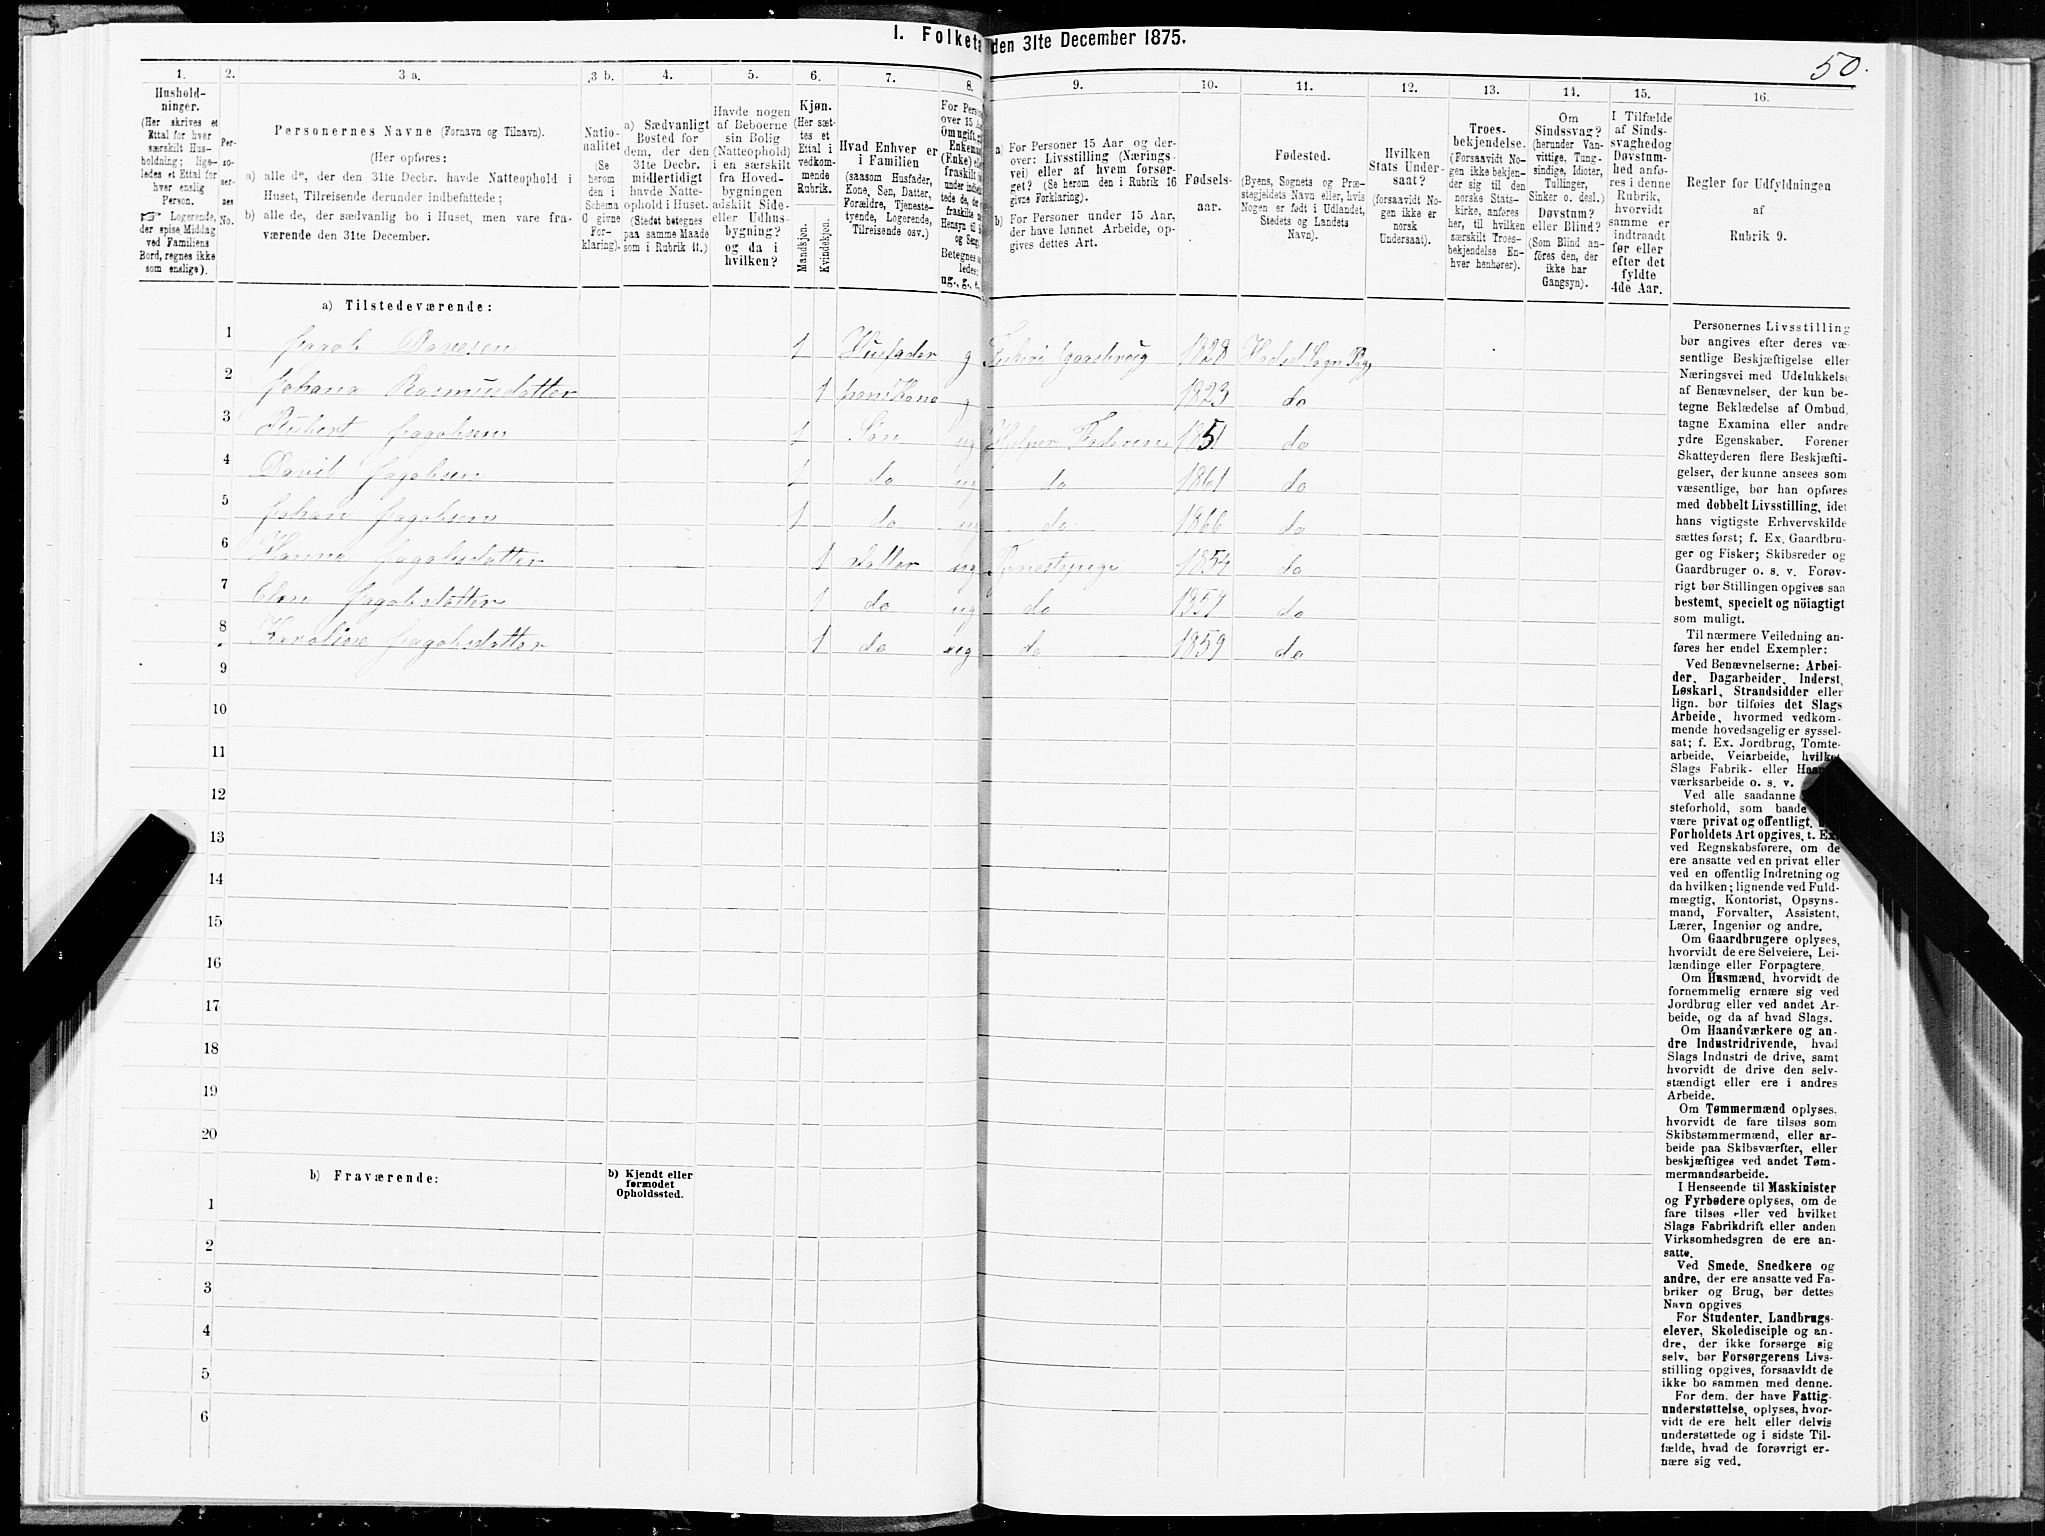 I. Folketæ
den 31te December 1875.
50.
1.
2.
3 a.
3 b.
4.
5.
6.
7.
8.
9.
10.
11.
12.
13.
14.
15.
16.
Hushold-
ninger.
(Her skrives et
Ettal for hver
særskilt Hus-
holdning; lige-
ledes et Ettal for
hver enslig
Person.
☞ Logerende,
der spise Middag
ved Familiens
Bord, regnes ikke
som enslige).
Per-
so-
ner-
nes
No.
Personernes Navne (Fornavn og Tilnavn).
(Her opføres:
a) alle de, der den 31te Decbr. havde Natteophold i
Huset, Tilreisende derunder indbefattede;
b) alle de, der sædvanlig bo i Huset, men vare fra-
værende den 31te December.
Natio-
nalitet
(Se
herom
den i
Schema
O givne
For-
klaring).
a) Sædvanligt
Bosted for
dem, der den
31te Decbr.
midlertidigt
havde Natte-
ophold i Huset.
(Stedet betegnes
paa samme Maade
som i Rubrik 11.)
Havde nogen
af Beboerne
sin Bolig
(Natteophold)
i en særskilt
fra Hoved-
bygningen
adskilt Side-
eller Udhus-
bygning?
og da i
hvilken?
Kjøn.
(Her sæt-
tes et
Ettal i
vedkom-
mende
Rubrik.
Mandkjøn.
Kvindekjøn.
Hvad Enhver er
i Familien
(saasom Husfader,
Kone, Søn, Datter,
Forældre, Tjeneste-
tyende, Logerende,
Tilreisende osv.)
For Pers
over 15
Om ugift, g
Enkema
(Enke)
fraskilt
ug., g., e.,
a) For Personer 15 Aar og der-
over: Livsstilling (Nærings-
vei) eller af hvem forsør-
get? (Se herom den i Rubrik 16
givne Forklaring).
b) For Personer under 15 Aar,
der have lønnet Arbeide, op-
gives dettes Art.
Fødsels-
aar.
Fødested.
(Byens, Sognets og Præ-
stegjeldets Navn eller, hvis
Nogen er født i Udlandet,
Stedets og Landets
Navn).
Hvilken
Stats Under-
saat?
(forsaavidt No-
gen ikke er
norsk
Undersaat).
Troes-
bekjendelse.
(Forsaavidt No-
gen ikke bekjen-
der sig til den
norske Stats-
kirke, anføres
her, til hvilken
særskilt Troes-
bekjendelse En-
hver henhører).
Om
Sindssvag?
(herunder Van-
vittige, Tung-
sindige, Idioter,
Tullinger,
Sinker o. desl.)
Døvstum?
eller Blind?
(Som Blind an-
føres den, der
ikke har
Gangsyn).
I Tilfælde
af Sinds-
svaghed og
Døvstum-
hed anfø-
res i denne
Rubrik,
hvorvidt
samme er
indtraadt
før eller
efter det
fyldte
4de Aar.
Regler for Udfyldningen
af
Rubrik 9.
a) Tilstedeværende:
1 Jagob Davesen 1 Husfader g Gaardbrug 1828 Hadsel Sogn Prg
2 Johana Rasmusdatter 1 hans Kone g 1823 do
3 Rubert Jagobsen 1 Søn ug Helper Faderen 1851 do
4 David Jagobsen 1 do ug do 1861 do
5 Johan Jagobsen 1 do ug do 1866 do
6 Hanna Jagobsdatter 1 datter ug Tjenestepige 1854 do
7 Elen Jagobsdatter 1 do ug do 1857 do
8 Karoline Jagobsdatter 1 do ug do 1859 do
9
10
11
12
13
14
15
16
17
18
19
20
b) Fraværende:
b) Kjendt eller
formodet
Opholdssted.
1
2
3
4
5
6
Personernes Livsstilling
bør angives efter deres væ-
sentlige Beskjæftigelse eller
Næringsvei med Udelukkelse
af Benævnelser, der kun be-
tegne Beklædelse af Ombud,
tagne Examina eller andre
ydre Egenskaber. Forener
Skatteyderen flere Beskjæfti-
gelser, der kunne ansees som
væsentlige, bør han opføres
med dobbelt Livsstilling, idet
hans vigtigste Erhvervskilde
sættes først; f. Ex. Gaardbru-
ger og Fisker; Skibsreder og
Gaardbruger o. s. v. Forøv-
rigt bør Stillingen opgives saa
bestemt, specielt og nöiagtigt
som muligt.
Til nærmere Veiledning an-
føres her endel Exempler:
Ved Benævnelserne: Arbei-
der, Dagarbeider, Inderst,
Løskarl, Strandsidder eller
lign. bør tilføies det Slags
Arbeide, hvormed vedkom-
mende hovedsagelig er syssel-
sat; f. Ex. Jordbrug, Tomte-
arbeide, Veiarbeide, hvilket
Slags Fabrik- eller Haand-
værksarbeide o. s. v.
Ved alle saadanne
steforhold, som baade
være privat og offentligt,
Forholdets Art opgives, t. Ex.
ved Regnskabsførere, om de
ere ansatte ved en privat eller
ved en offentlig Indretning og
da hvilken; lignende ved Fuld-
mægtig, Kontorist, Opsyns-
mand, Forvalter, Assistent,
Lærer, Ingeniør og andre.
Om Gaardbrugere oplyses,
hvorvidt de ere Selveiere, Lei-
lændinge eller Forpagtere.
Om Husmænd, hvorvidt de
fornemmelig ernære sig ved
Jordbrug eller ved andet Ar-
beide, og da af hvad Slags.
Om Haandværkere og an-
dre Industridrivende, hvad
Slags Industri de drive, samt
hvorvidt de drive den selv-
stændigt eller ere i andres
Arbeide.
Om Tømmermænd oplyses,
hvorvidt de fare tilsøs som
Skibstømmermænd, eller ar-
beide paa Skibsværfter, eller
beskjæftiges ved andet Tøm-
mermandsarbeide.
I Henseende til Maskinister
og Fyrbødere oplyses, om de
fare tilsøs eller ved hvilket
Slags Fabrikdrift eller anden
Virksomhedsgren de ere an-
satte.
Ved Smede, Snedkere og
andre, der ere ansatte ved Fa-
briker og Brug, bør dettes
Navn opgives
For Studenter, Landbrugs-
elever, Skoledisciple og an-
dre, der ikke forsørge sig
selv, bør Forsørgerens Livs-
stilling opgives, forsaavidt de
ikke bo sammen med denne.
For dem, der have Fattig-
understøttelse, oplyses, hvor-
vidt de ere helt eller delvis
understøttede og i sidste Til-
fælde, hvad de forøvrigt er-
nære sig ved.